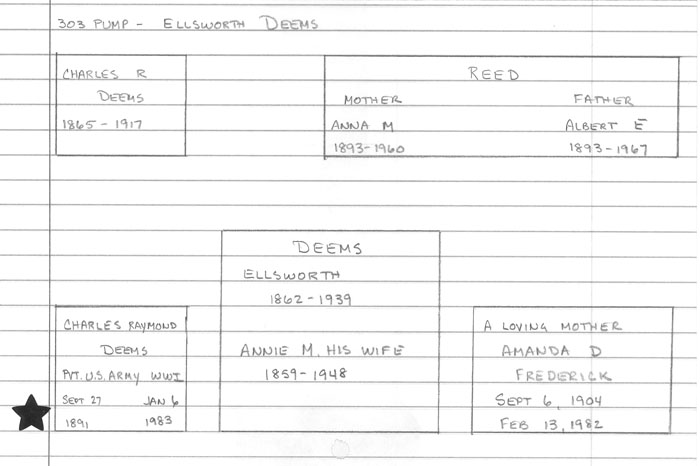 303 PUMP - ELLSWORTH DEEMS
CHARLES R
DEEMS
1865 - 1917
REED
MOTHER FATHER
ANNA M ALBERT E
1893-1960 1893-1967
DEEMS
ELLSWORTH
1862-1939
ANNIE M. HIS WIFE
1859-1948
CHARLES RAYMOND
DEEMS
PVT. U.S. ARMY WWI
SEPT 27 JAN 6
1891 1983
A LOVING MOTHER
AMANDA D
FREDERICK
SEPT 6, 1904
FEB 13, 1982